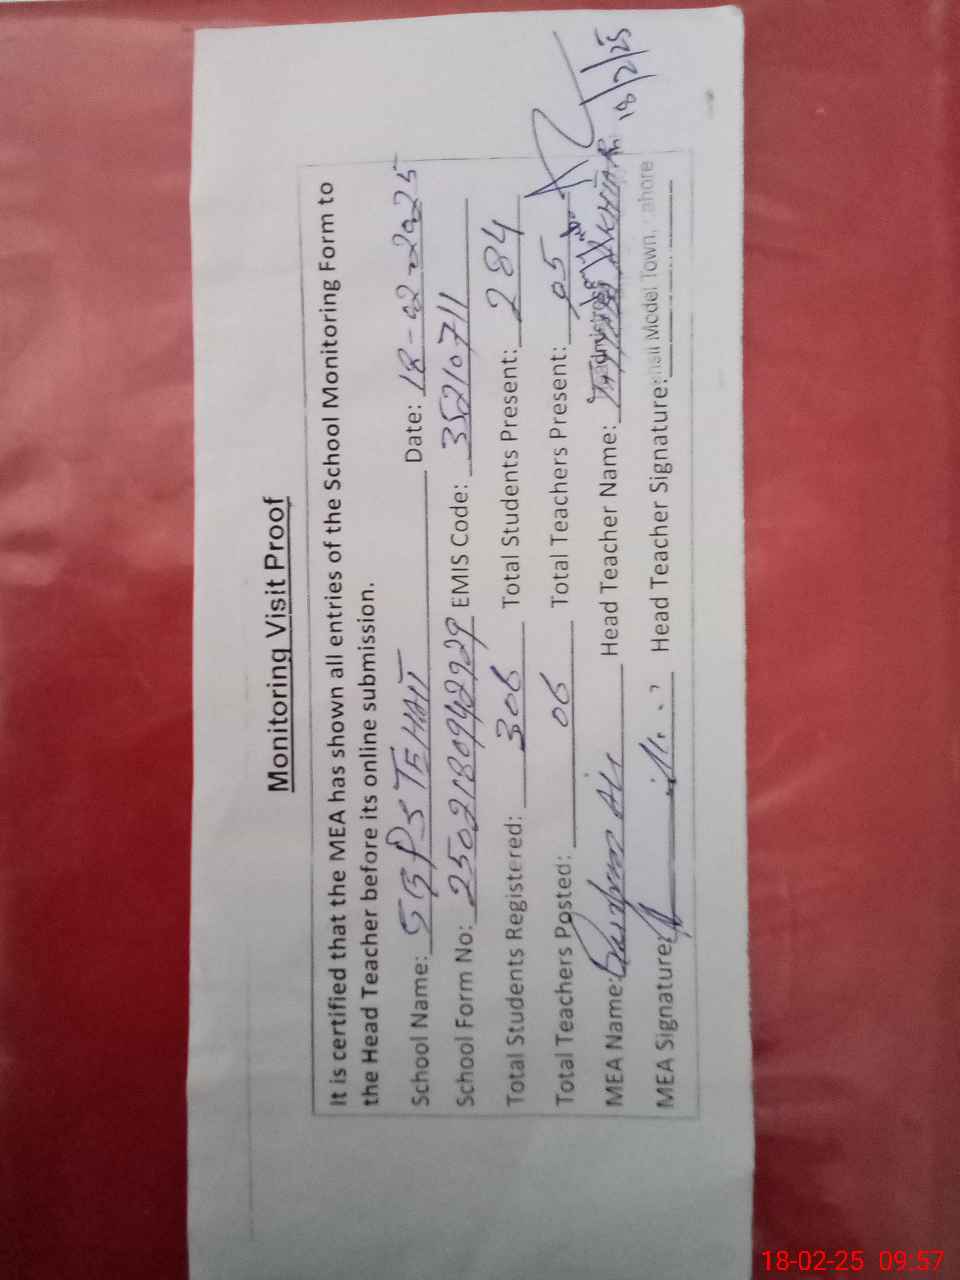 Monitoring Visit Proof
It is certified that the MEA has shown all entries of the School Monitoring Form to
the Head Teacher before its online submission.
School Name: SGPS JEHAIT Date: 18-02-2025
School Form No: 2502180942929 EMIS Code: 35210711
Total Students Registered: 306 Total Students Present: 284
Total Teachers Posted: 06 Total Teachers Present: 05
MEA Name: Ali Head Teacher Name:
18/2/25
MEA Signature: Head Teacher Signature: Model Town, Lahore
18-02-25 09:57